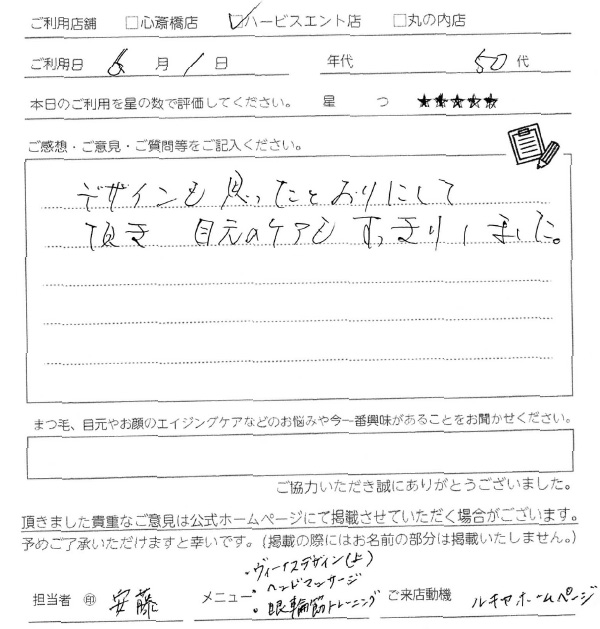 ご利用店舗 □心斎橋店 ☑ハービスエント店 □丸の内店
ご利用日 6月1日 年代 50代
本日のご利用を星の数で評価してください。 星 つ ★★★★★
ご感想・ご意見・ご質問等をご記入ください。
デザインも思ったとおりにして
頂き 目元のケアも すっきりしました。
まつ毛、目元やお顔のエイジングケアなどのお悩みや今一番興味があることをお聞かせください。
ご協力いただき誠にありがとうございました。
頂きました貴重なご意見は公式ホームページにて掲載させていただく場合がございます。
予めご了承いただけますと幸いです。(掲載の際にはお名前の部分は掲載いたしません。)
・ヴィーナスデザイン(上)
・ヘッドマッサージ
担当者 ㊞ 安藤 メニュー ・眼輪筋トレーニング ご来店動機 ルキヤホームページ